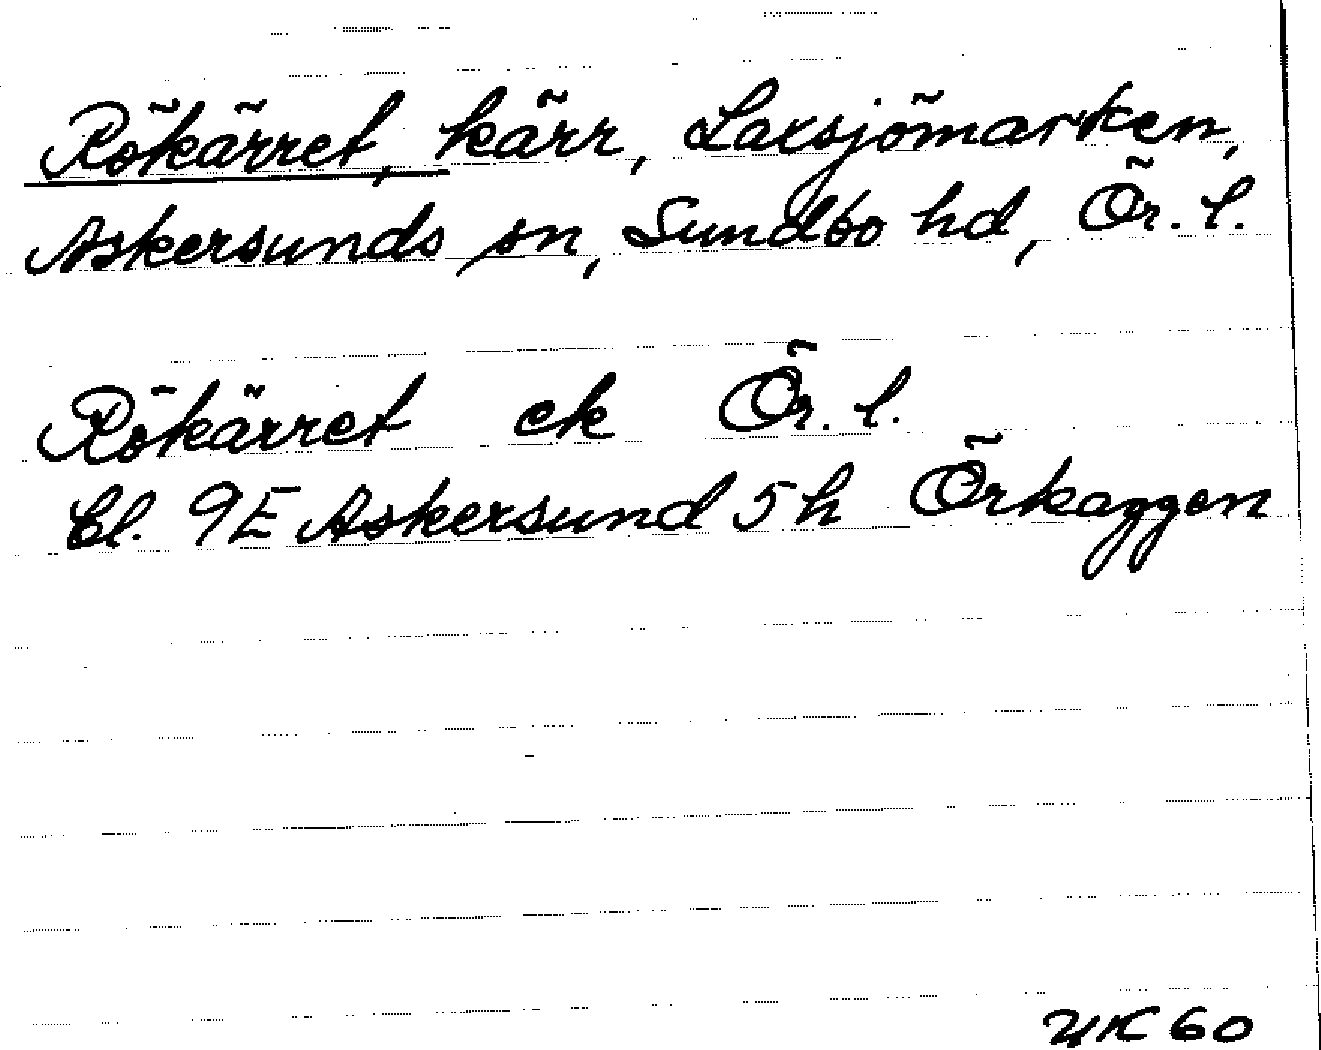 Rökärret, kärr, Laxsjömarken,
Askersunds sn, Sundbo hd, Ör. l.
Rökärret ek Ör. l.
Bl. 9E Askersund 5h Örkaggen
UK 60